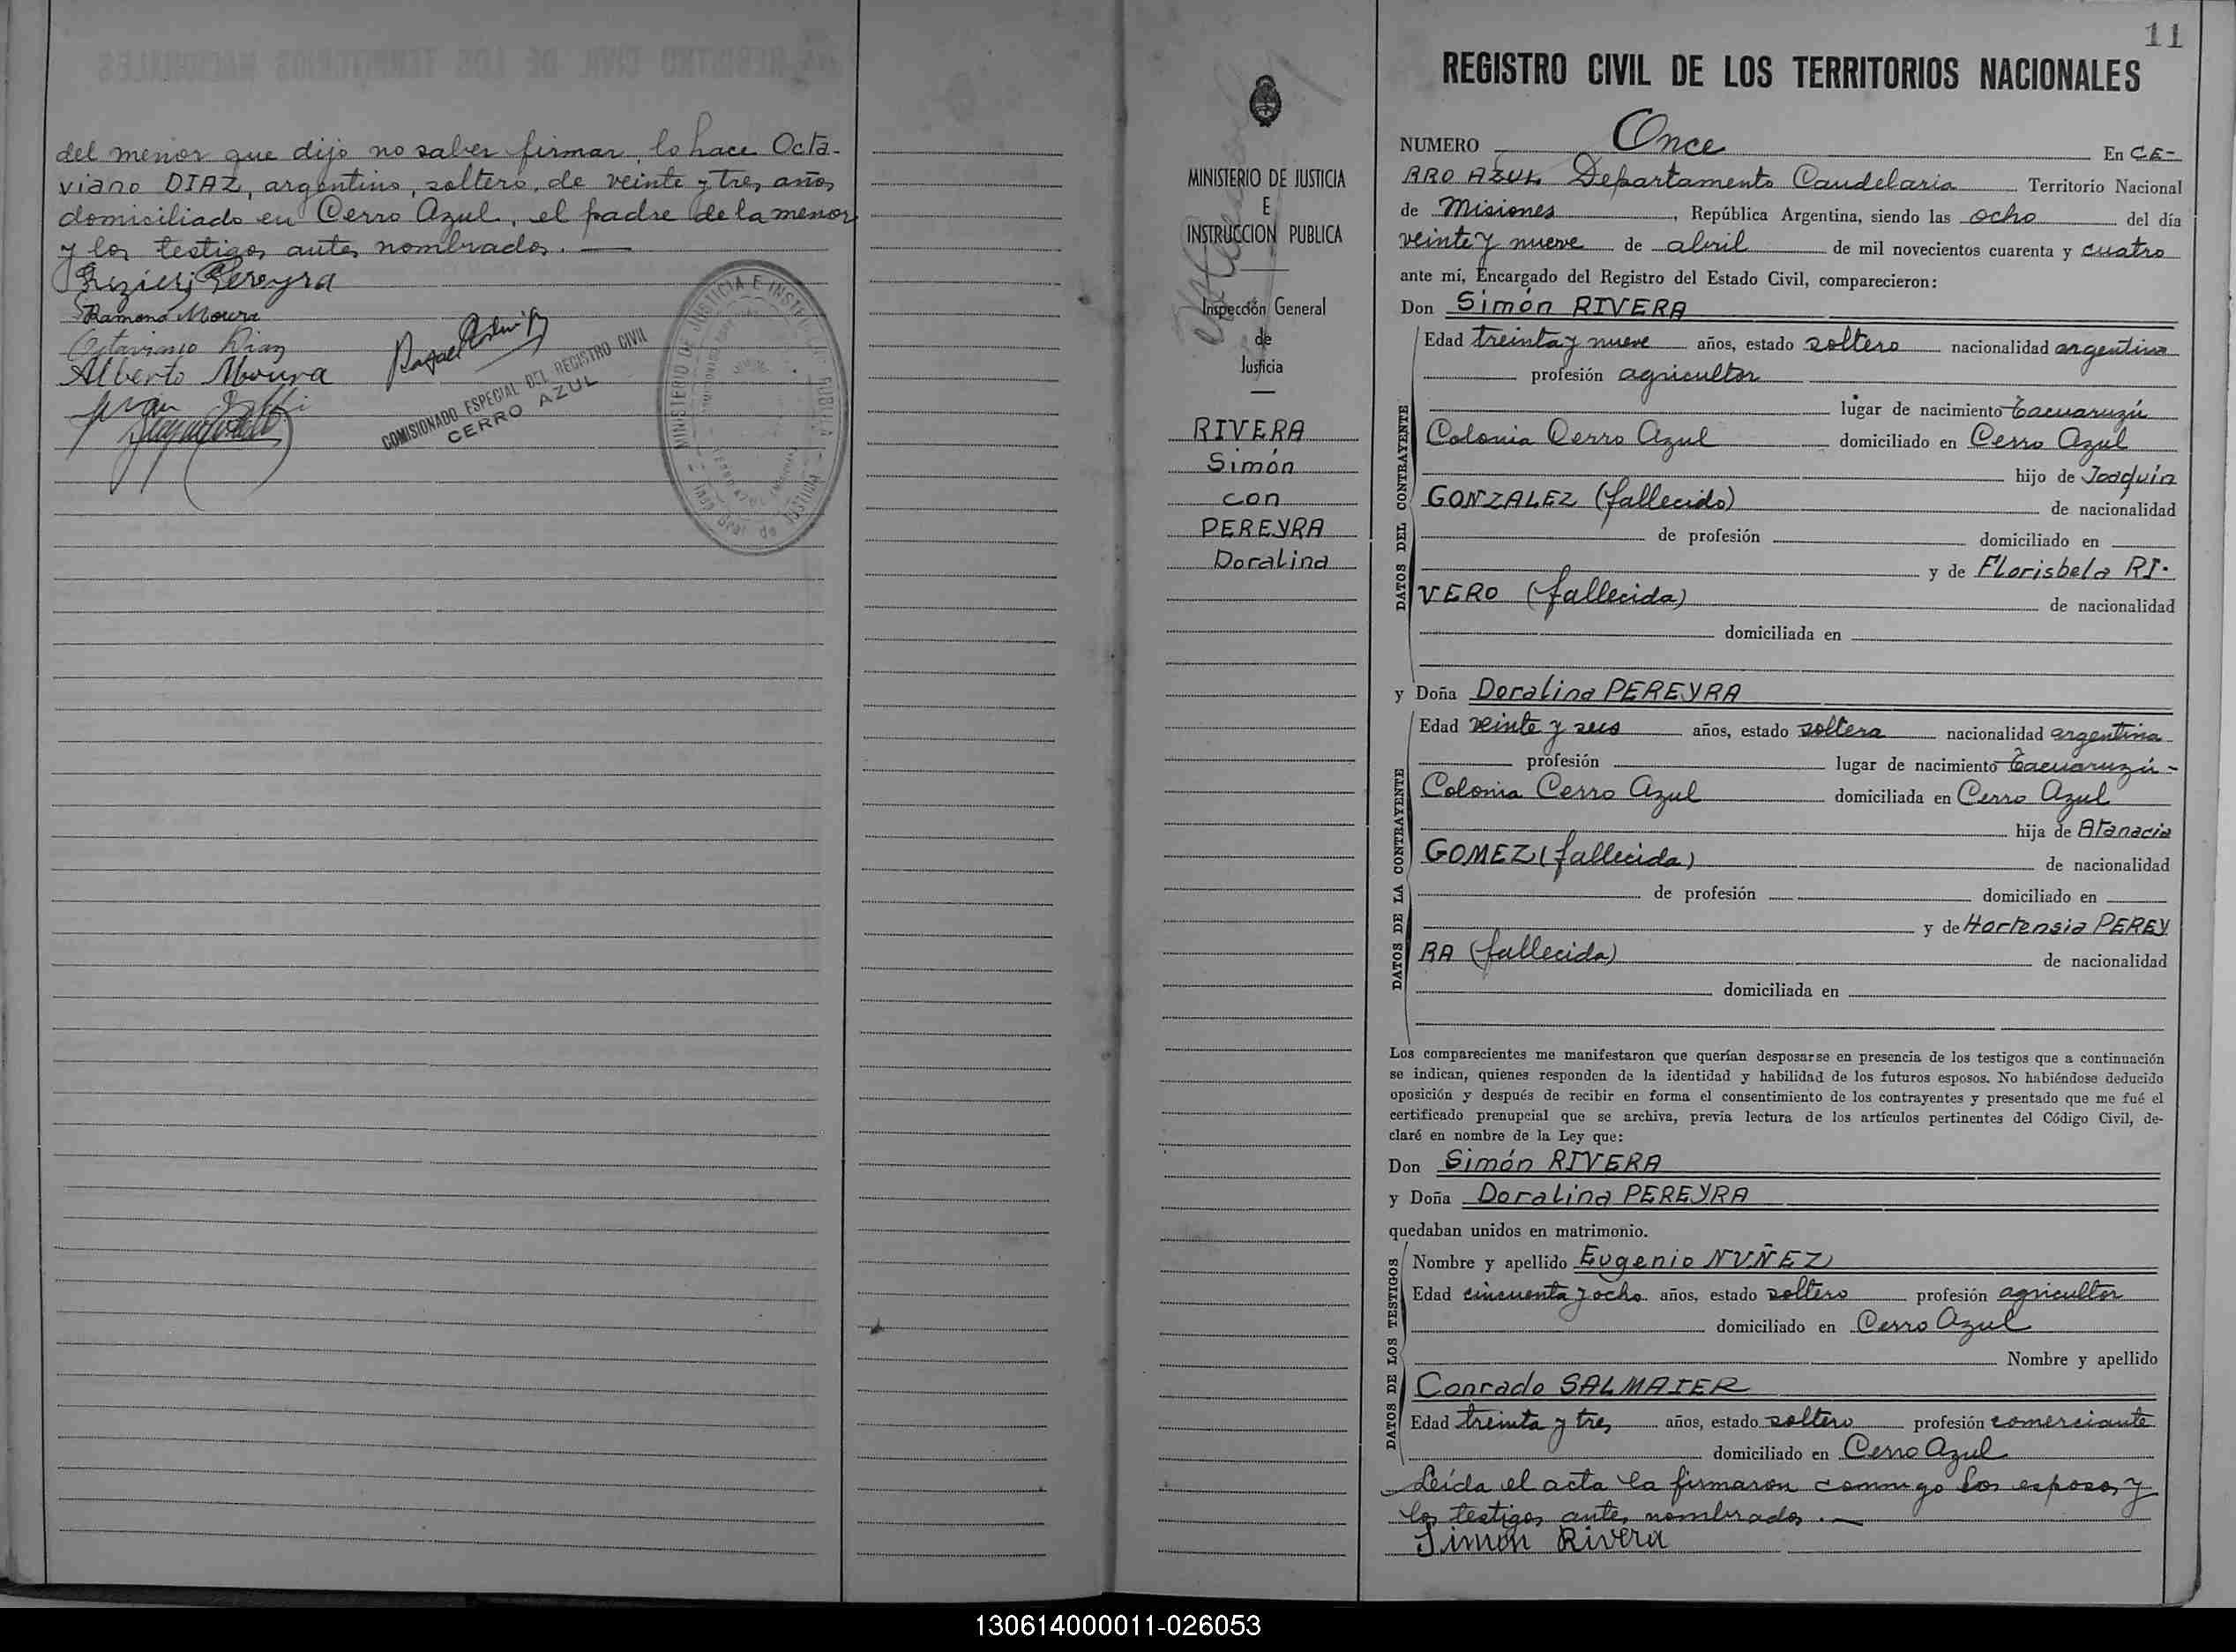 del menor que dijo no saber firmar, lo hace Octa-
viano DIAZ, argentino, soltero, de veinte y tres años
domiciliado en Cerro Azul, el padre de la menor
y los testigos antes nombrados. —
Pereyra
Ramona Moura
Octaviano Diaz
Alberto Moura
Rafael
COMISIONADO ESPECIAL DEL REGISTRO CIVIL
CERRO AZUL
MINISTERIO DE JUSTICIA E INSTRUCCION PUBLICA
Insp. Gral. de Justicia
MINISTERIO DE JUSTICIA
E
INSTRUCCION PUBLICA
Inspección General
de
Justicia
RIVERA
Simón
con
PEREYRA
Doralina
11
REGISTRO CIVIL DE LOS TERRITORIOS NACIONALES
NUMERO Once En CE-
RRO AZUL Departamento Candelaria Territorio Nacional
de Misiones, República Argentina, siendo las ocho del día
veinte y nueve de abril de mil novecientos cuarenta y cuatro
ante mí, Encargado del Registro del Estado Civil, comparecieron:
Don Simón RIVERA
DATOS DEL CONTRAYENTE
Edad treinta y nueve años, estado soltero nacionalidad argentina
profesión agricultor
lugar de nacimiento Tacuaruzú
Colonia Cerro Azul domiciliado en Cerro Azul
hijo de Joaquín
GONZALEZ (fallecido) de nacionalidad
de profesión domiciliado en
y de Florisbela RI-
VERO (fallecida) de nacionalidad
domiciliada en
y Doña Doralina PEREYRA
DATOS DE LA CONTRAYENTE
Edad veinte y seis años, estado soltera nacionalidad argentina
profesión lugar de nacimiento Tacuaruzú-
Colonia Cerro Azul domiciliada en Cerro Azul
hija de Atanacia
GOMEZ (fallecida) de nacionalidad
de profesión domiciliado en
y de Hortensia PEREY
RA (fallecida) de nacionalidad
domiciliada en
Los comparecientes me manifestaron que querían desposarse en presencia de los testigos que a continuación
se indican, quienes responden de la identidad y habilidad de los futuros esposos. No habiéndose deducido
oposición y después de recibir en forma el consentimiento de los contrayentes y presentado que me fué el
certificado prenupcial que se archiva, previa lectura de los artículos pertinentes del Código Civil, de-
claré en nombre de la Ley que:
Don Simón RIVERA
y Doña Doralina PEREYRA
quedaban unidos en matrimonio.
DATOS DE LOS TESTIGOS
Nombre y apellido Eugenio NUÑEZ
Edad cincuenta y ocho años, estado soltero profesión agricultor
domiciliado en Cerro Azul
Nombre y apellido
Conrado SALMAIER
Edad treinta y tres años, estado soltero profesión comerciante
domiciliado en Cerro Azul
Leída el acta la firmaron conmigo los esposos y
los testigos antes nombrados. —
Simón Rivera
130614000011-026053